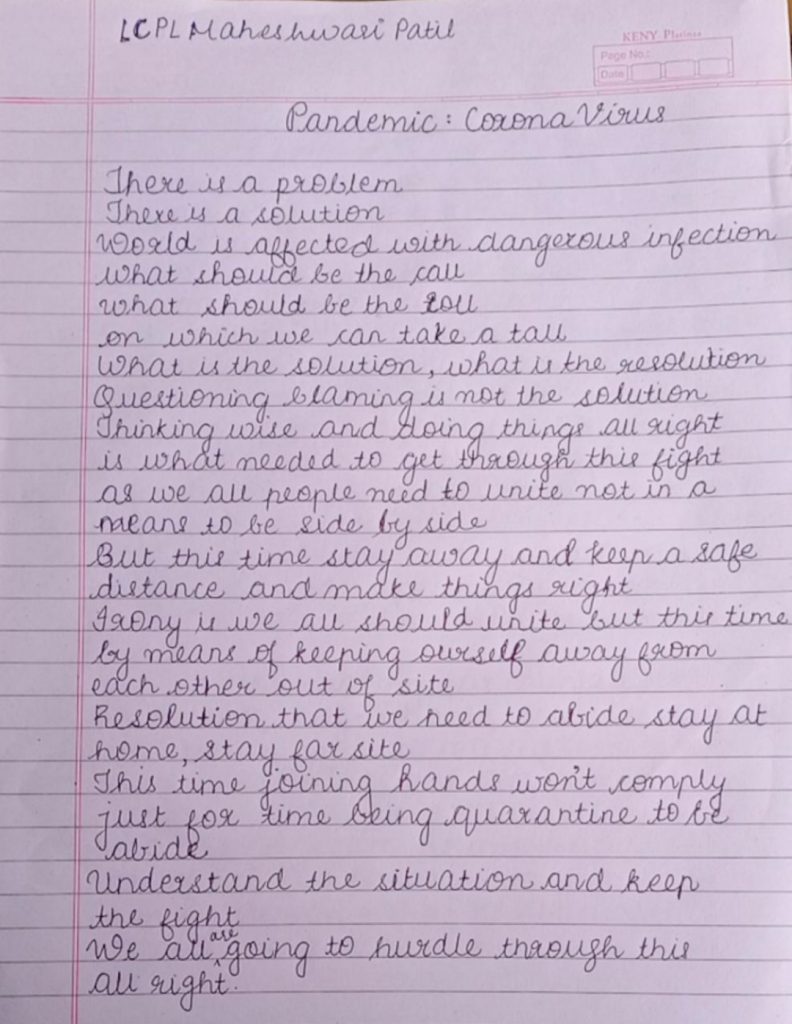 LCPL Maheshwari Patil
KENY Platina
Page No.:
Date
Pandemic : Corona Virus
There is a problem
There is a solution
World is affected with dangerous infection
what should be the call
what should be the roll
on which we can take a tall
What is the solution, what is the resolution
Questioning blaming is not the solution
Thinking wise and doing things all right
is what needed to get through this fight
as we all people need to unite not in a
means to be side by side
But this time stay away and keep a safe
distance and make things right
Irony is we all should unite but this time
by means of keeping ourself away from
each other out of site
Resolution that we need to abide stay at
home, stay far site
This time joining hands won't comply
just for time being quarantine to be
abide
Understand the situation and keep
the fight
We all are going to hurdle through this
all right.